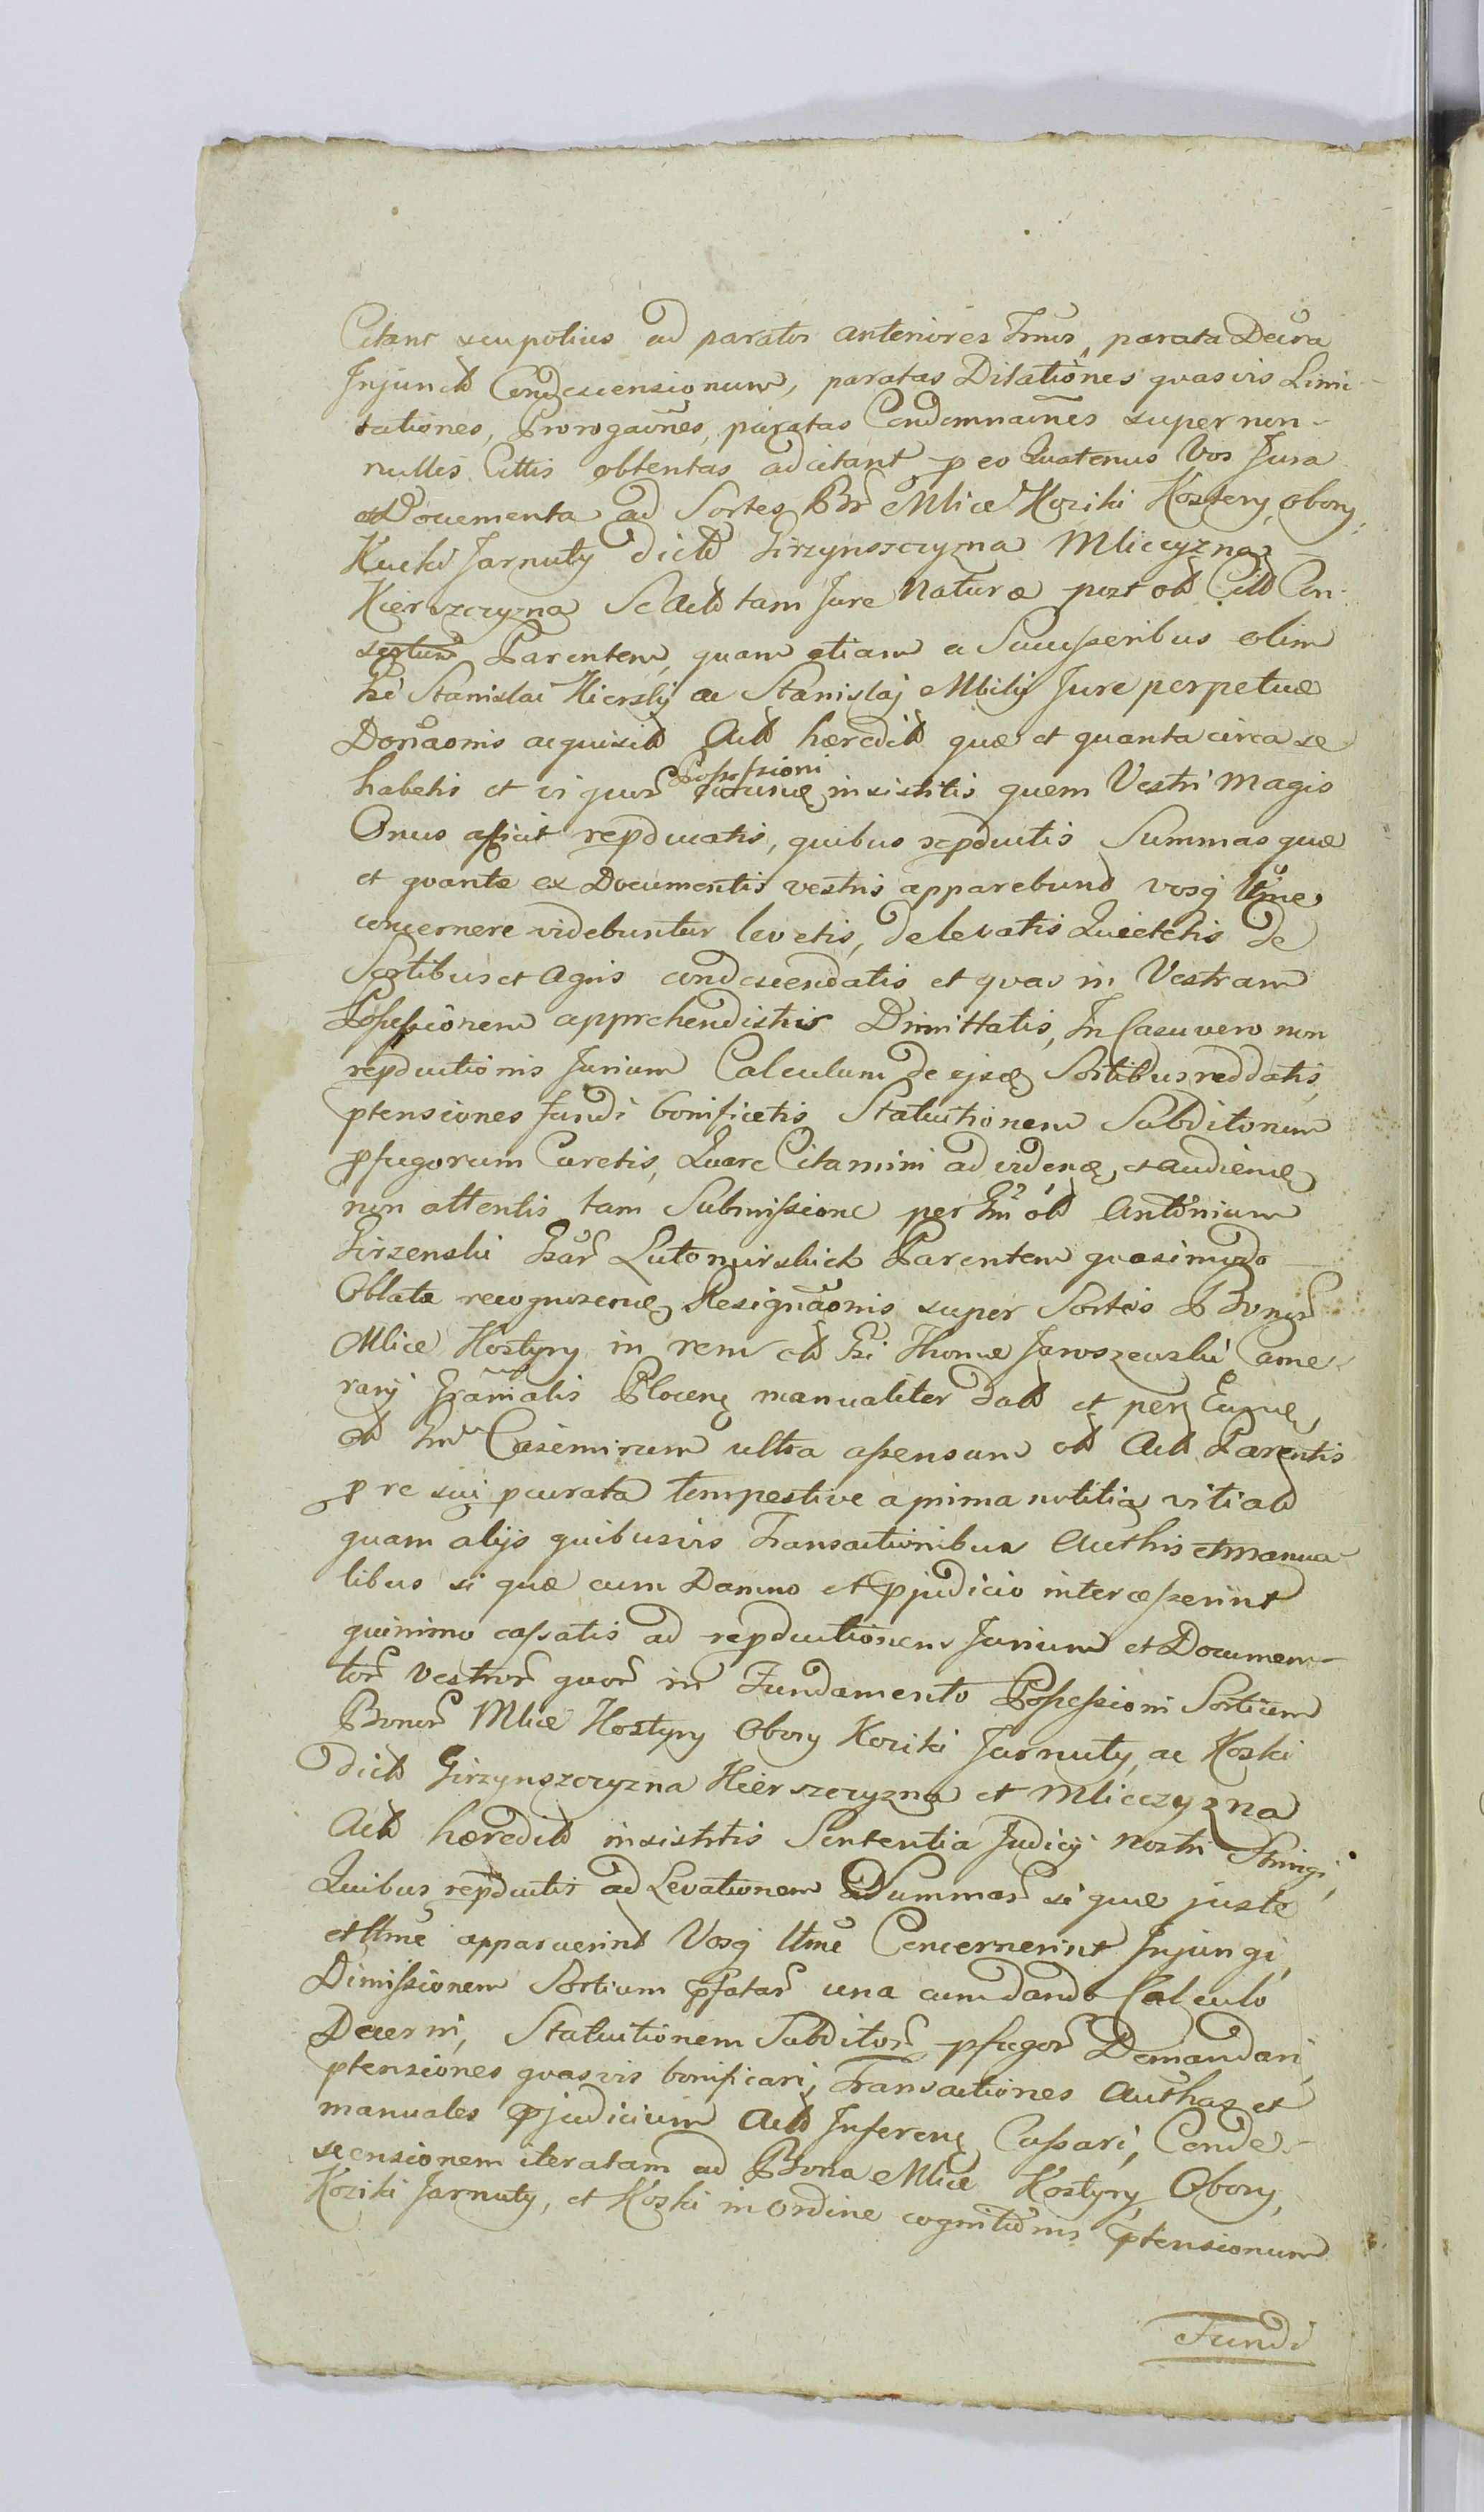 Citant seu potius ad paratos anteriores Tmos, parata Decra
Injunctt Condescensionum, paratas Dilationes quasvis Limi-
tationes, Prorogaones, paratas Condemnaones super non-
nullis Cittis obtentas adcitant p eo Quatenus Vos Jura
et Documenta ad Sortes Bor Mlice Koziki Kostery, Obory,
Kucki Jarnuty dictt Girzynszczyzna Mliczyzna
Kierszczyzna Se Actt tam Jure Naturæ post ott Citt Con-
sortum Parentem, quam etiam a Successoribus olim
Gsi Stanislai Kierski ac Stanislaj Mlicki Jure perpetuæ
Donaonis acquisitt Actt hæreditt quæ et quanta circa se
habetis et vi quor Possessioni earumq insistitis quem Vestri magis
Onus afficit repducatis, quibus repductis Summas quæ
et quantæ ex Documentis vestris apparebunt vosq ltme
concernere videbuntur levetis, de levatis Quietetis de
Sortibus et Agris condescendatis et quas in Vestram
Possessionem apprehendistis Dimittatis, In Casu vero non
repductionis Jurium Calculum de ejsdq Sortibus reddatis,
ptensiones fundi bonificetis Statuitionem Subditorum
pfugorum Curetis, Quare Citamini ad vidend et audiend
non attentis tam Submissione per Gm ott Antonium
Girzenski Gsar Lutomirskich Parentem quasi modo
Oblatæ recognoscend Resignaonis super Sortes Bonor
Mlice Kostyry in rem ott Gsi Thomæ Jaroszewski Came-
rarij Granialis Plocens manualiter datt et per Eumd
ott Gm Casimirum ultra assensum ott Actt Parentis
p re sui pcurata tempestive a prima notitia vitiatt
quam alijs quibusvis Transactionibus Authis et manua-
libus si quæ cum Damno et pjudicio intercesserint
quinimo cassatis ad repductionem Jurium et Documen-
tor Vestror quor in Fundamento Possessioni Sortium
Bonor Mlice Kostyry Obory Koziki Jarnuty, ac Koski
dictt Girzynszczyzna Kierszczyzna et Mliczyzna
Actt hæreditt insistitis Sententia Judicij nostri Stringi,
Quibus repductis ad Levationem Summar si quæ juste
et ltme apparuerint Vosq ltme Concernerint Injungi,
Dimissionem Sortium pfatar una cum dando Calculo
Decerni, Statuitionem Subditor pfugor Demandari,
ptensiones quasvis bonificari, Transactiones Authas et
manuales pjudicium Actt Inferens Cassari, Conde-
scensionem iteratam ad Bona Mlice Kostyry, Obory,
Koziki Jarnuty, et Koski in Ordine cognitionis ptensionum
Fundi